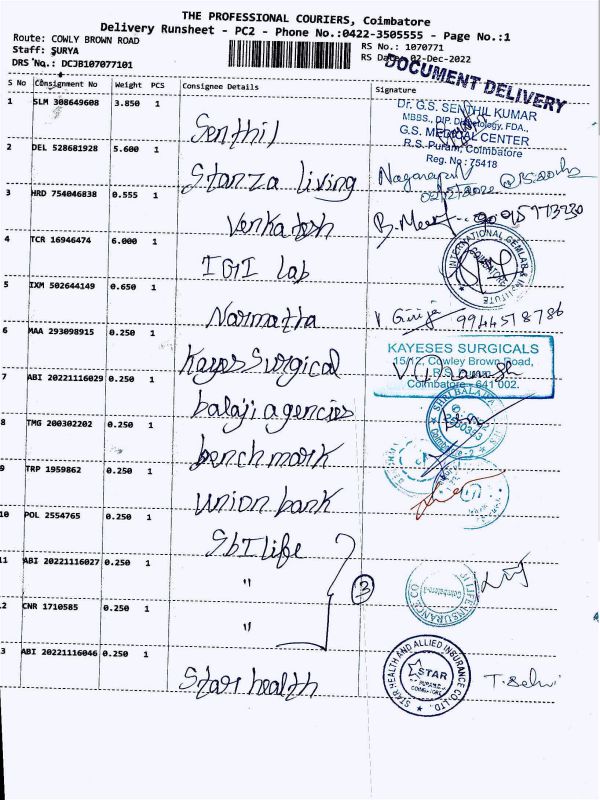 THE PROFESSIONAL COURIERS, Coimbatore
Delivery Runsheet - PC2 - Phone No.:0422-3505555 - Page No.:1
Route: COWLY BROWN ROAD
RS No.: 1070771
Staff: SURYA
RS Date: 02-Dec-2022
DRS No.: DCJB107077101
DOCUMENT DELIVERY
S No Consignment No Weight PCS Consignee Details Signature
1 SLM 308649608 3.850 1 Senthil
Dr. G.S. SENTHIL KUMAR
MBBS., DIP. Diabetology, FDA.,
G.S. MEDICAL CENTER
R.S. Puram, Coimbatore
Reg. No : 75418
2 DEL 528681928 5.600 1 Stanza living
3 HRD 754046838 0.555 1 Venkatesh
4 TCR 16946474 6.000 1 IGI lab
INTERNATIONAL GEMLAB & INSTITUTE
COIMBATORE
5 IXM 502644149 0.650 1 Narmatha
V Girija 9944578786
6 MAA 293098915 0.250 1 Kayes Surgical
KAYESES SURGICALS
15/12, Cowley Brown Road,
R.S. Puram
Coimbatore - 641 002.
7 ABI 20221116029 0.250 1 balaji agencies
SHRI BALAJI
8 TMG 200302202 0.250 1 bench mark
9 TRP 1959862 0.250 1 Union bank
10 POL 2554765 0.250 1 SbI life
11 ABI 20221116027 0.250 1 "
3
LIFE INSURANCE CO
12 CNR 1710585 0.250 1 "
13 ABI 20221116046 0.250 1 Star health
STAR HEALTH AND ALLIED INSURANCE CO LTD.
STAR
T. Selvi